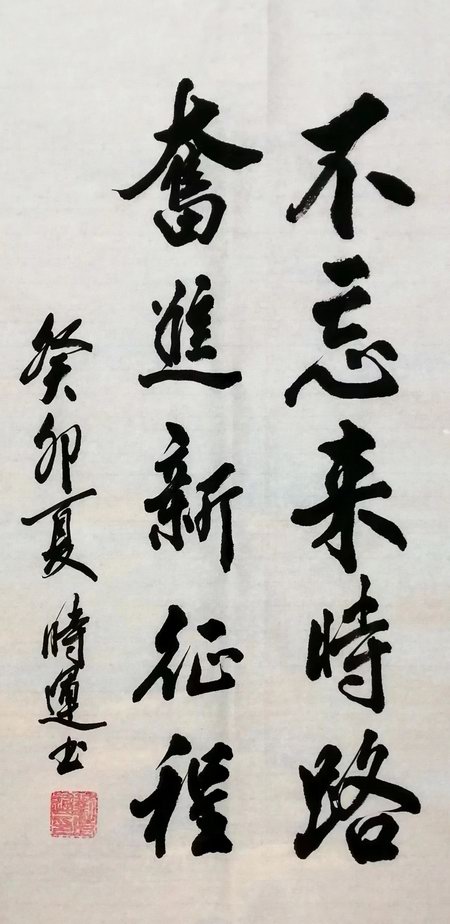 不忘来時路
奮進新征程
癸卯夏時運书